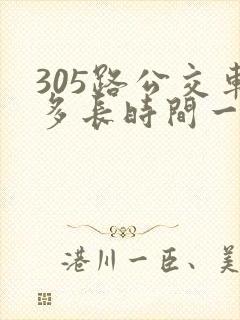 305路公交車
多長時間一
港川一臣、美